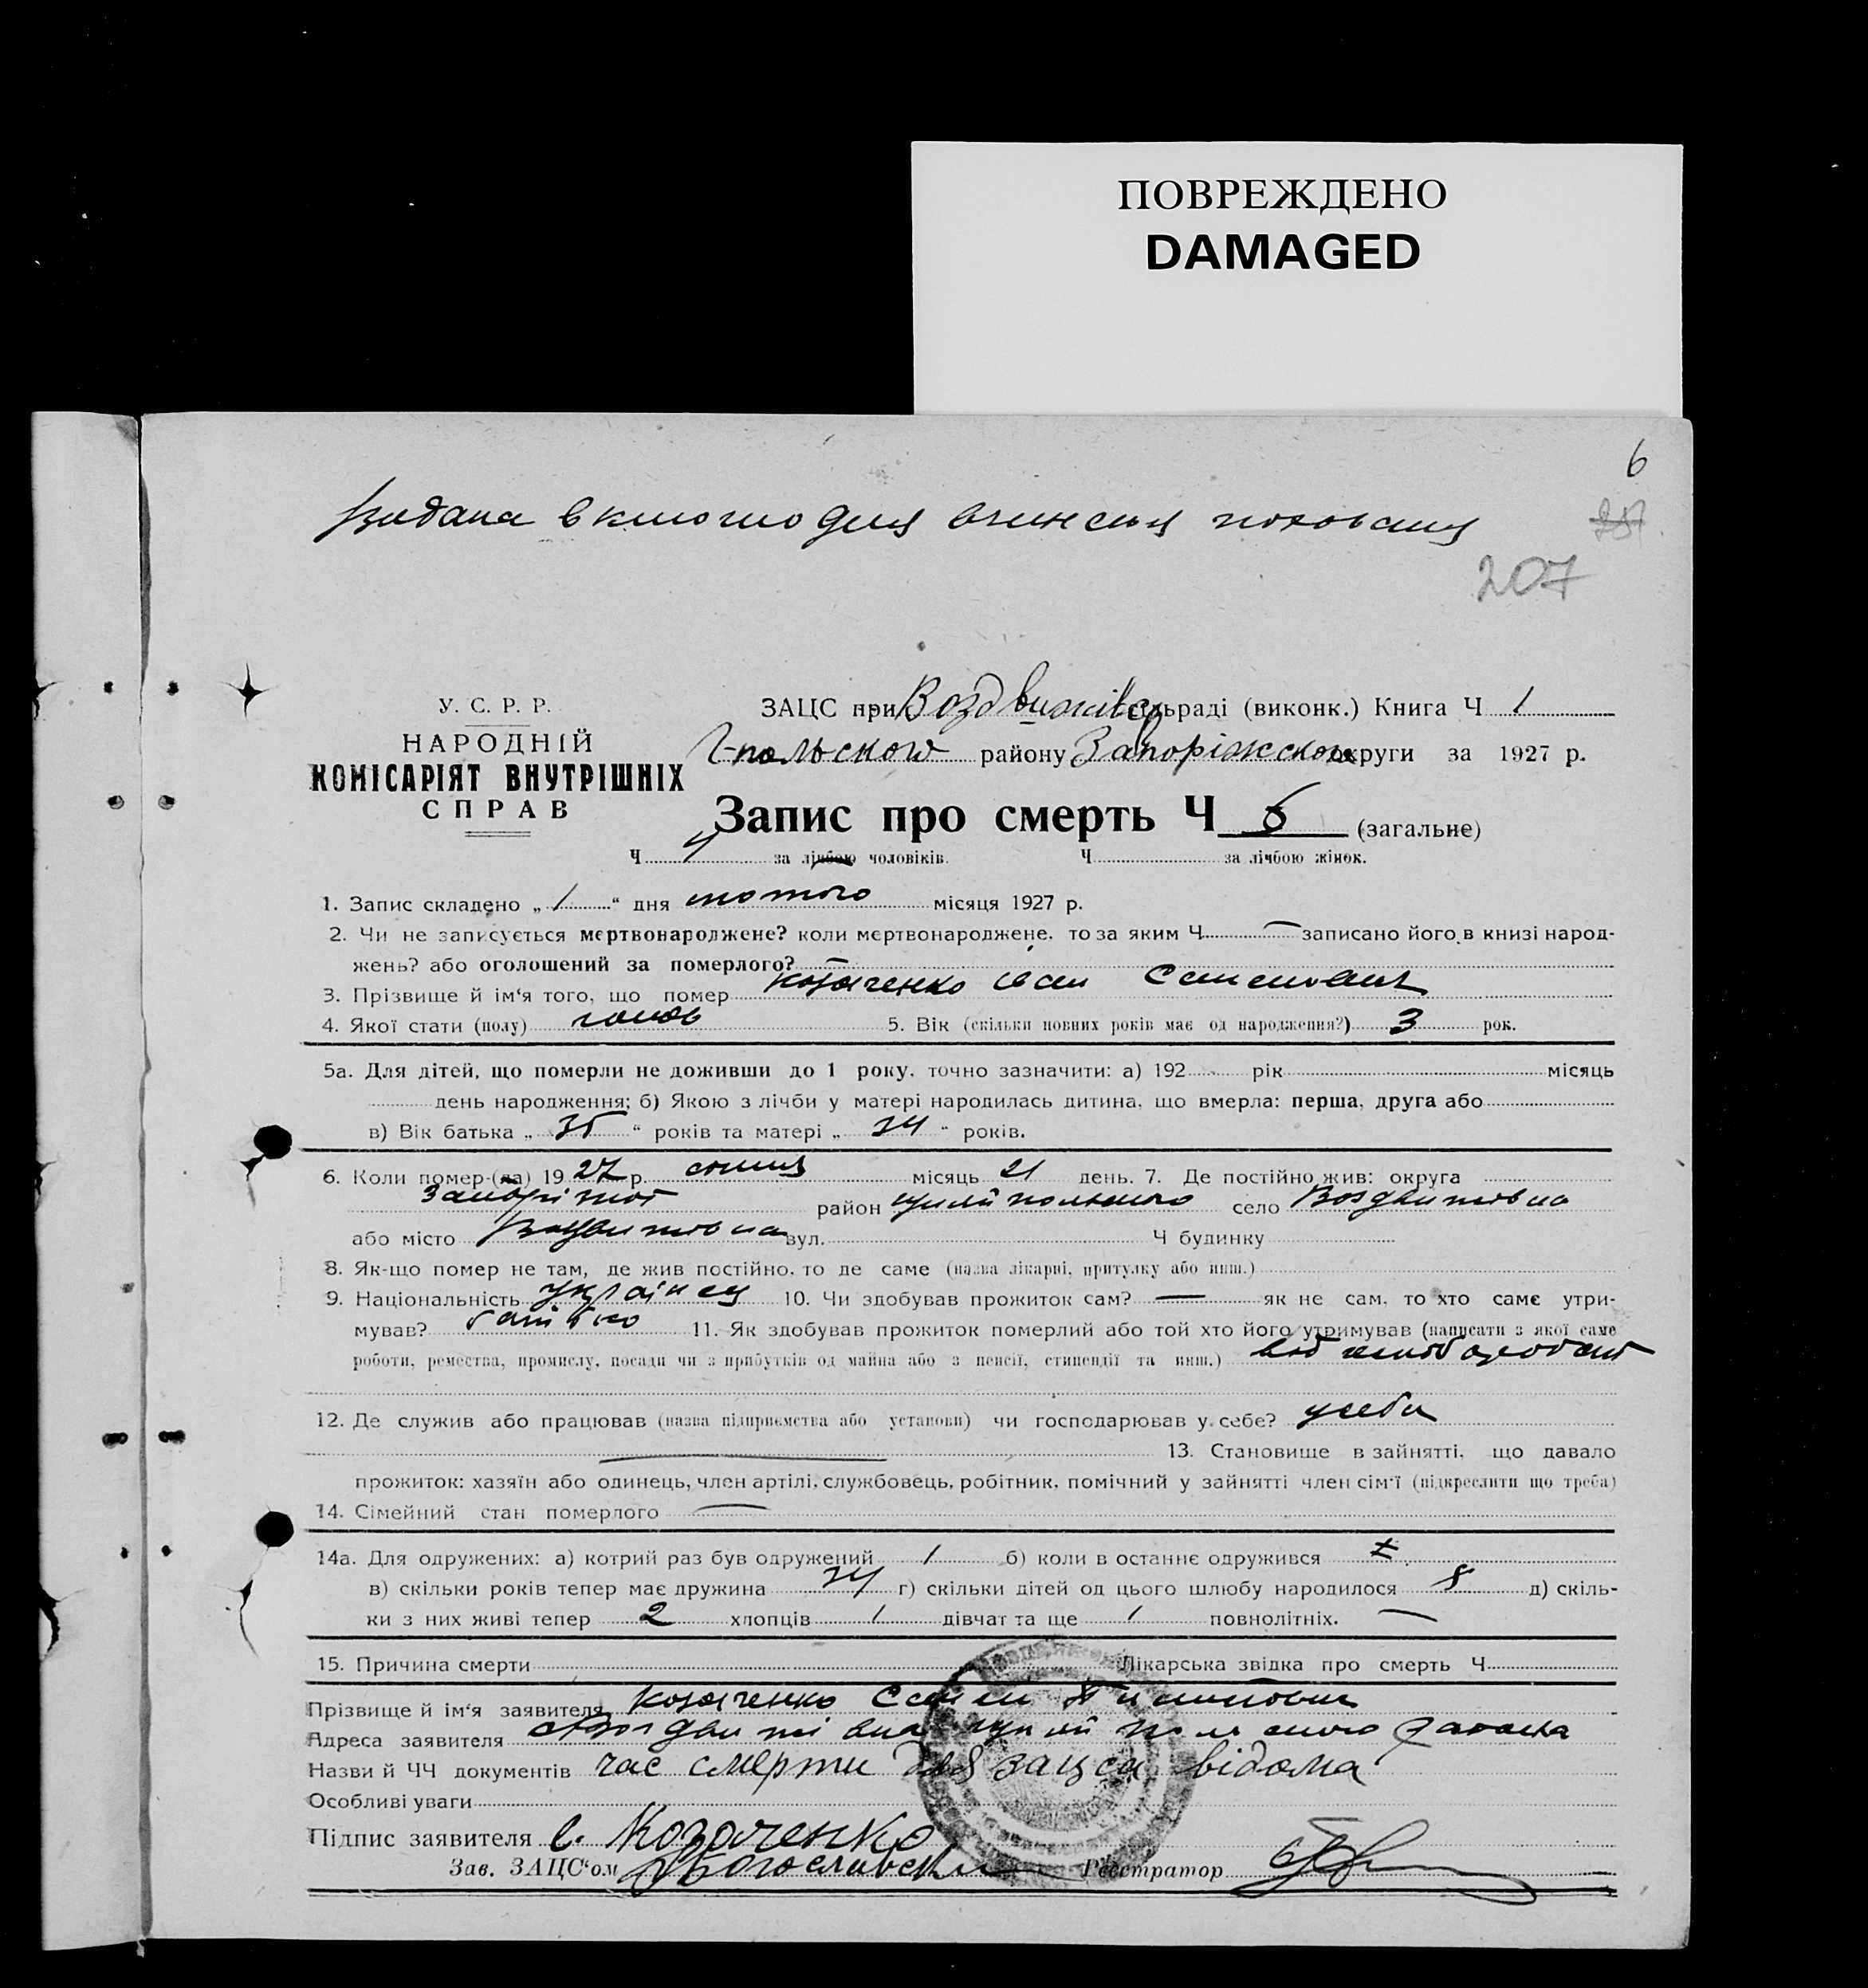 ПОВРЕЖДЕНО
DAMAGED
6
207
У. С. Р. Р.
НАРОДНІЙ
КОМІСАРІЯТ ВНУТРІШНІХ
СПРАВ
ЗАЦС при Воздвижівс сільраді (виконк.) Книга Ч 1
Г-польского району Запоріжского округи за 1927 р.
Запис про смерть Ч 6 (загальне)
Ч 4 за лічбою чоловіків. Ч за лічбою жінок.
1. Запис складено „ 1 “ дня лютого місяця 1927 р.
2. Чи не записується мертвонароджене? коли мертвонароджене, то за яким Ч — записано його в книзі народ-
жень? або оголошений за померлого?
3. Прізвище й ім‘я того, що помер Козаченко Іван Семенович
4. Якої стати (полу) чолов 5. Вік (скільки повних років має од народження?) 3 рок.
5а. Для дітей, що померли не доживши до 1 року, точно зазначити: а) 192 рік місяць
день народження; б) Якою з лічби у матері народилась дитина, що вмерла: перша, друга або
в) Вік батька „ 35 “ років та матері „ 34 “ років.
6. Коли помер-(ла) 1927 р. січня місяць 21 день. 7. Де постійно жив: округа
Запоріжск район Гуляйпольского село Воздвижівка
або місто Воздвижівка вул. Ч будинку
8. Як-що помер не там, де жив постійно, то де саме (назва лікарні, притулку або инш.)
9. Національність українец 10. Чи здобував прожиток сам? — як не сам, то хто саме утри-
мував? батько 11. Як здобував прожиток померлий або той хто його утримував (написати з якої саме
роботи, ремества, промислу, посади чи з прибутків од майна або з пенсії, стипендії та инш.) від
12. Де служив або працював (назва підприємства або установи) чи господарював у себе? у себе
13. Становище в зайнятті, що давало
прожиток: хазяїн або одинець, член артілі, службовець, робітник, помічний у зайнятті член сім‘ї (підкреслити що треба)
14. Сімейний стан померлого —
14а. Для одружених: а) котрий раз був одружений 1 б) коли в останнє одружився
в) скільки років тепер має дружина 34 г) скільки дітей од цього шлюбу народилося 8 д) скіль-
ки з них живі тепер 2 хлопців 1 дівчат та ще 1 повнолітніх. —
15. Причина смерти Лікарська звідка про смерть Ч
Прізвище й ім‘я заявителя Козаченко Семен
Адреса заявителя с Воздвижівка Гуляйпольского района
Назви й ЧЧ документів час смерти для зацса відома
Особливі уваги
Підпис заявителя С. Козаченко
Зав. ЗАЦС‘ом Богославскі Реєстратор